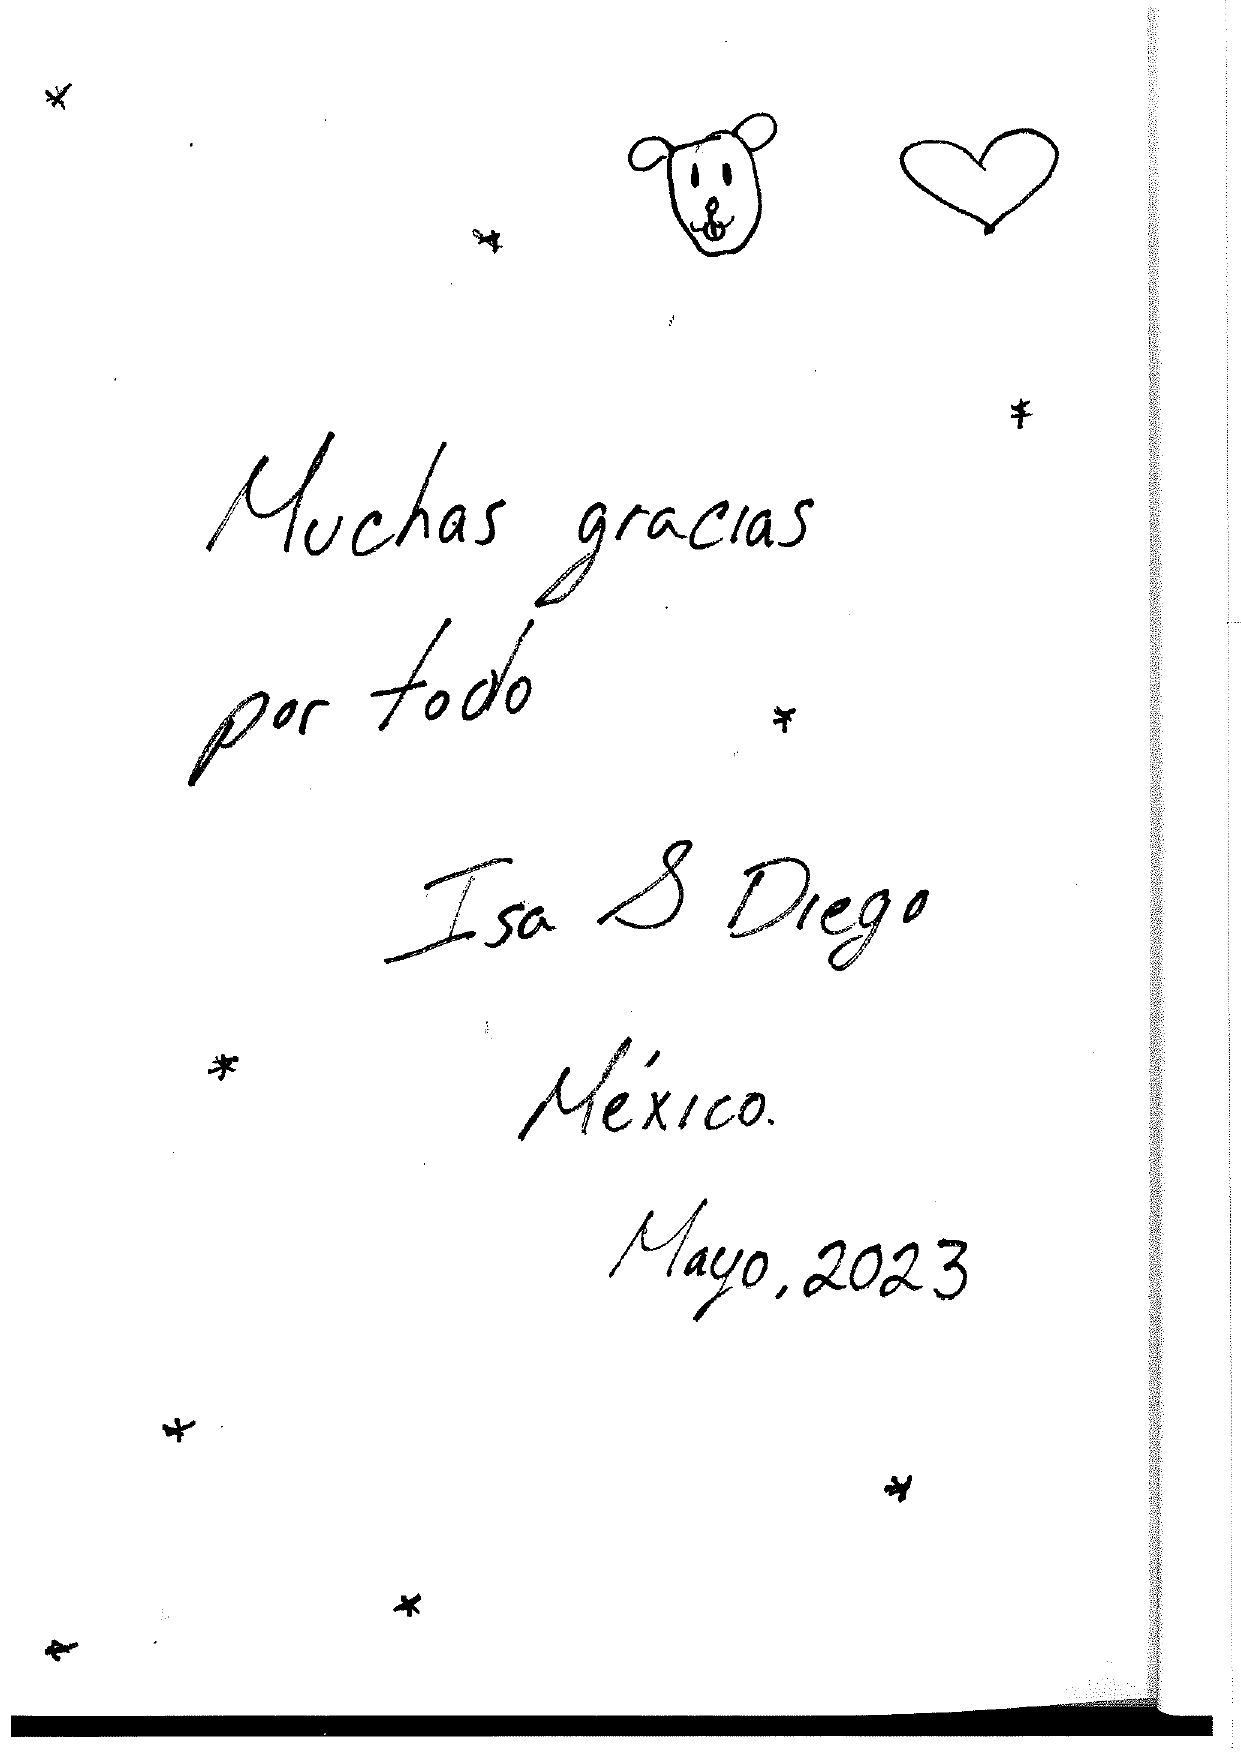 Muchas gracias
por todo
Isa & Diego
México.
Mayo, 2023